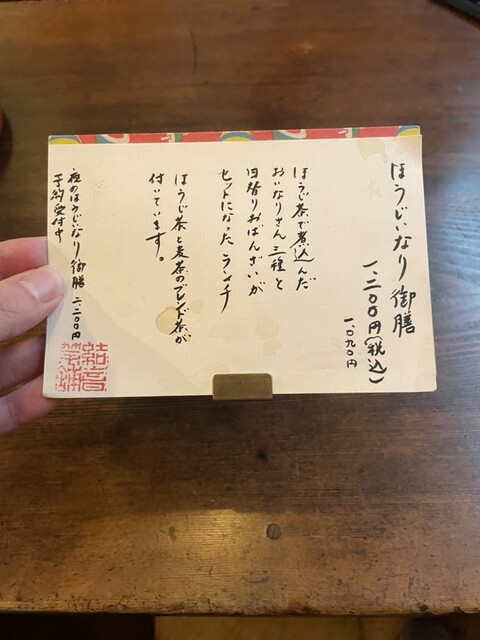 ほうじいなり御膳
一、二〇〇円(税込)
一、〇九〇円
ほうじ茶で煮込んだ
おいなりさん三種と
日替りおばんざいが
セットになったランチ
ほうじ茶と麦茶のブレンド茶が
付いています。
夜のほうじいなり御膳 二、二〇〇円
予約受付中